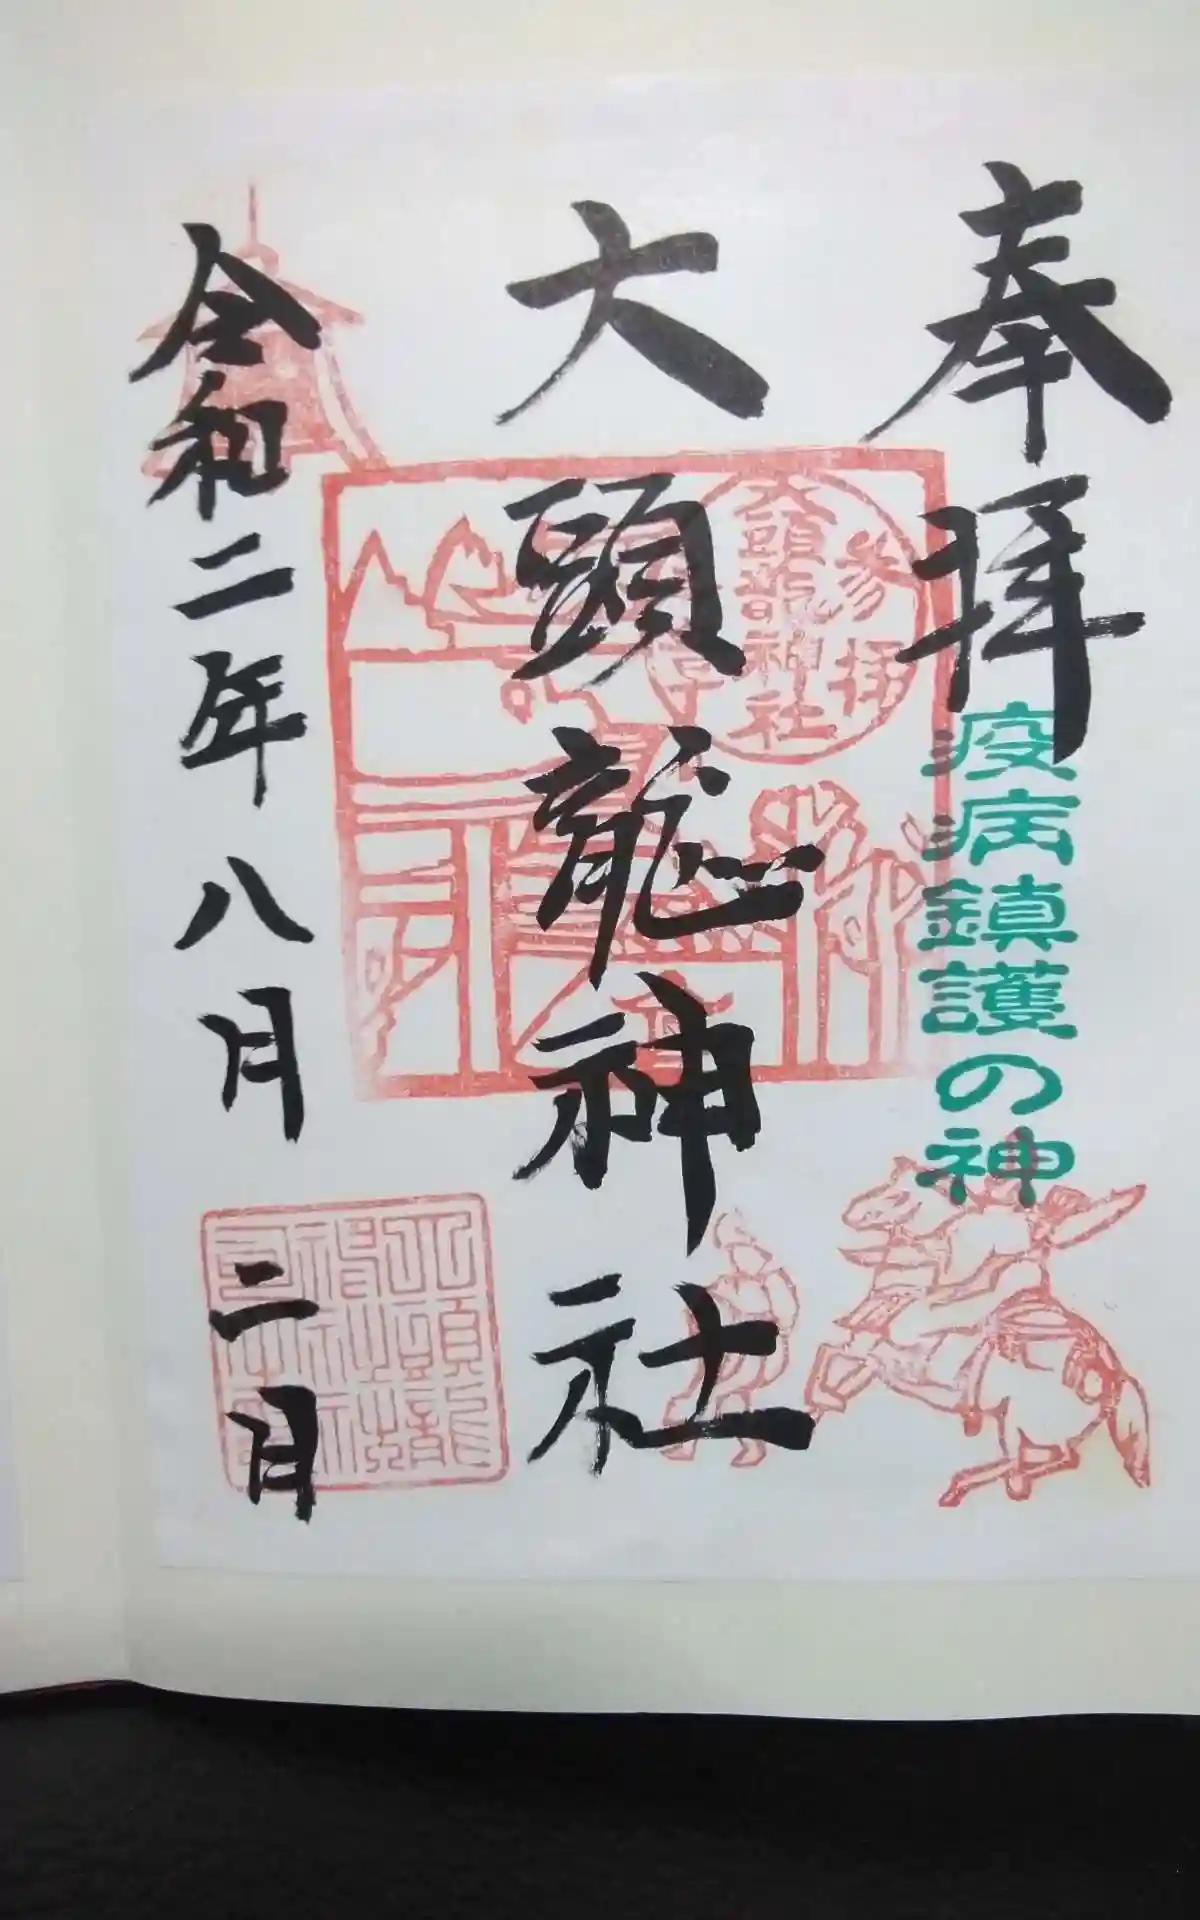 奉拝
疫病鎮護の神
大頭龍神社
参拝
大頭龍神社
令和二年八月二日